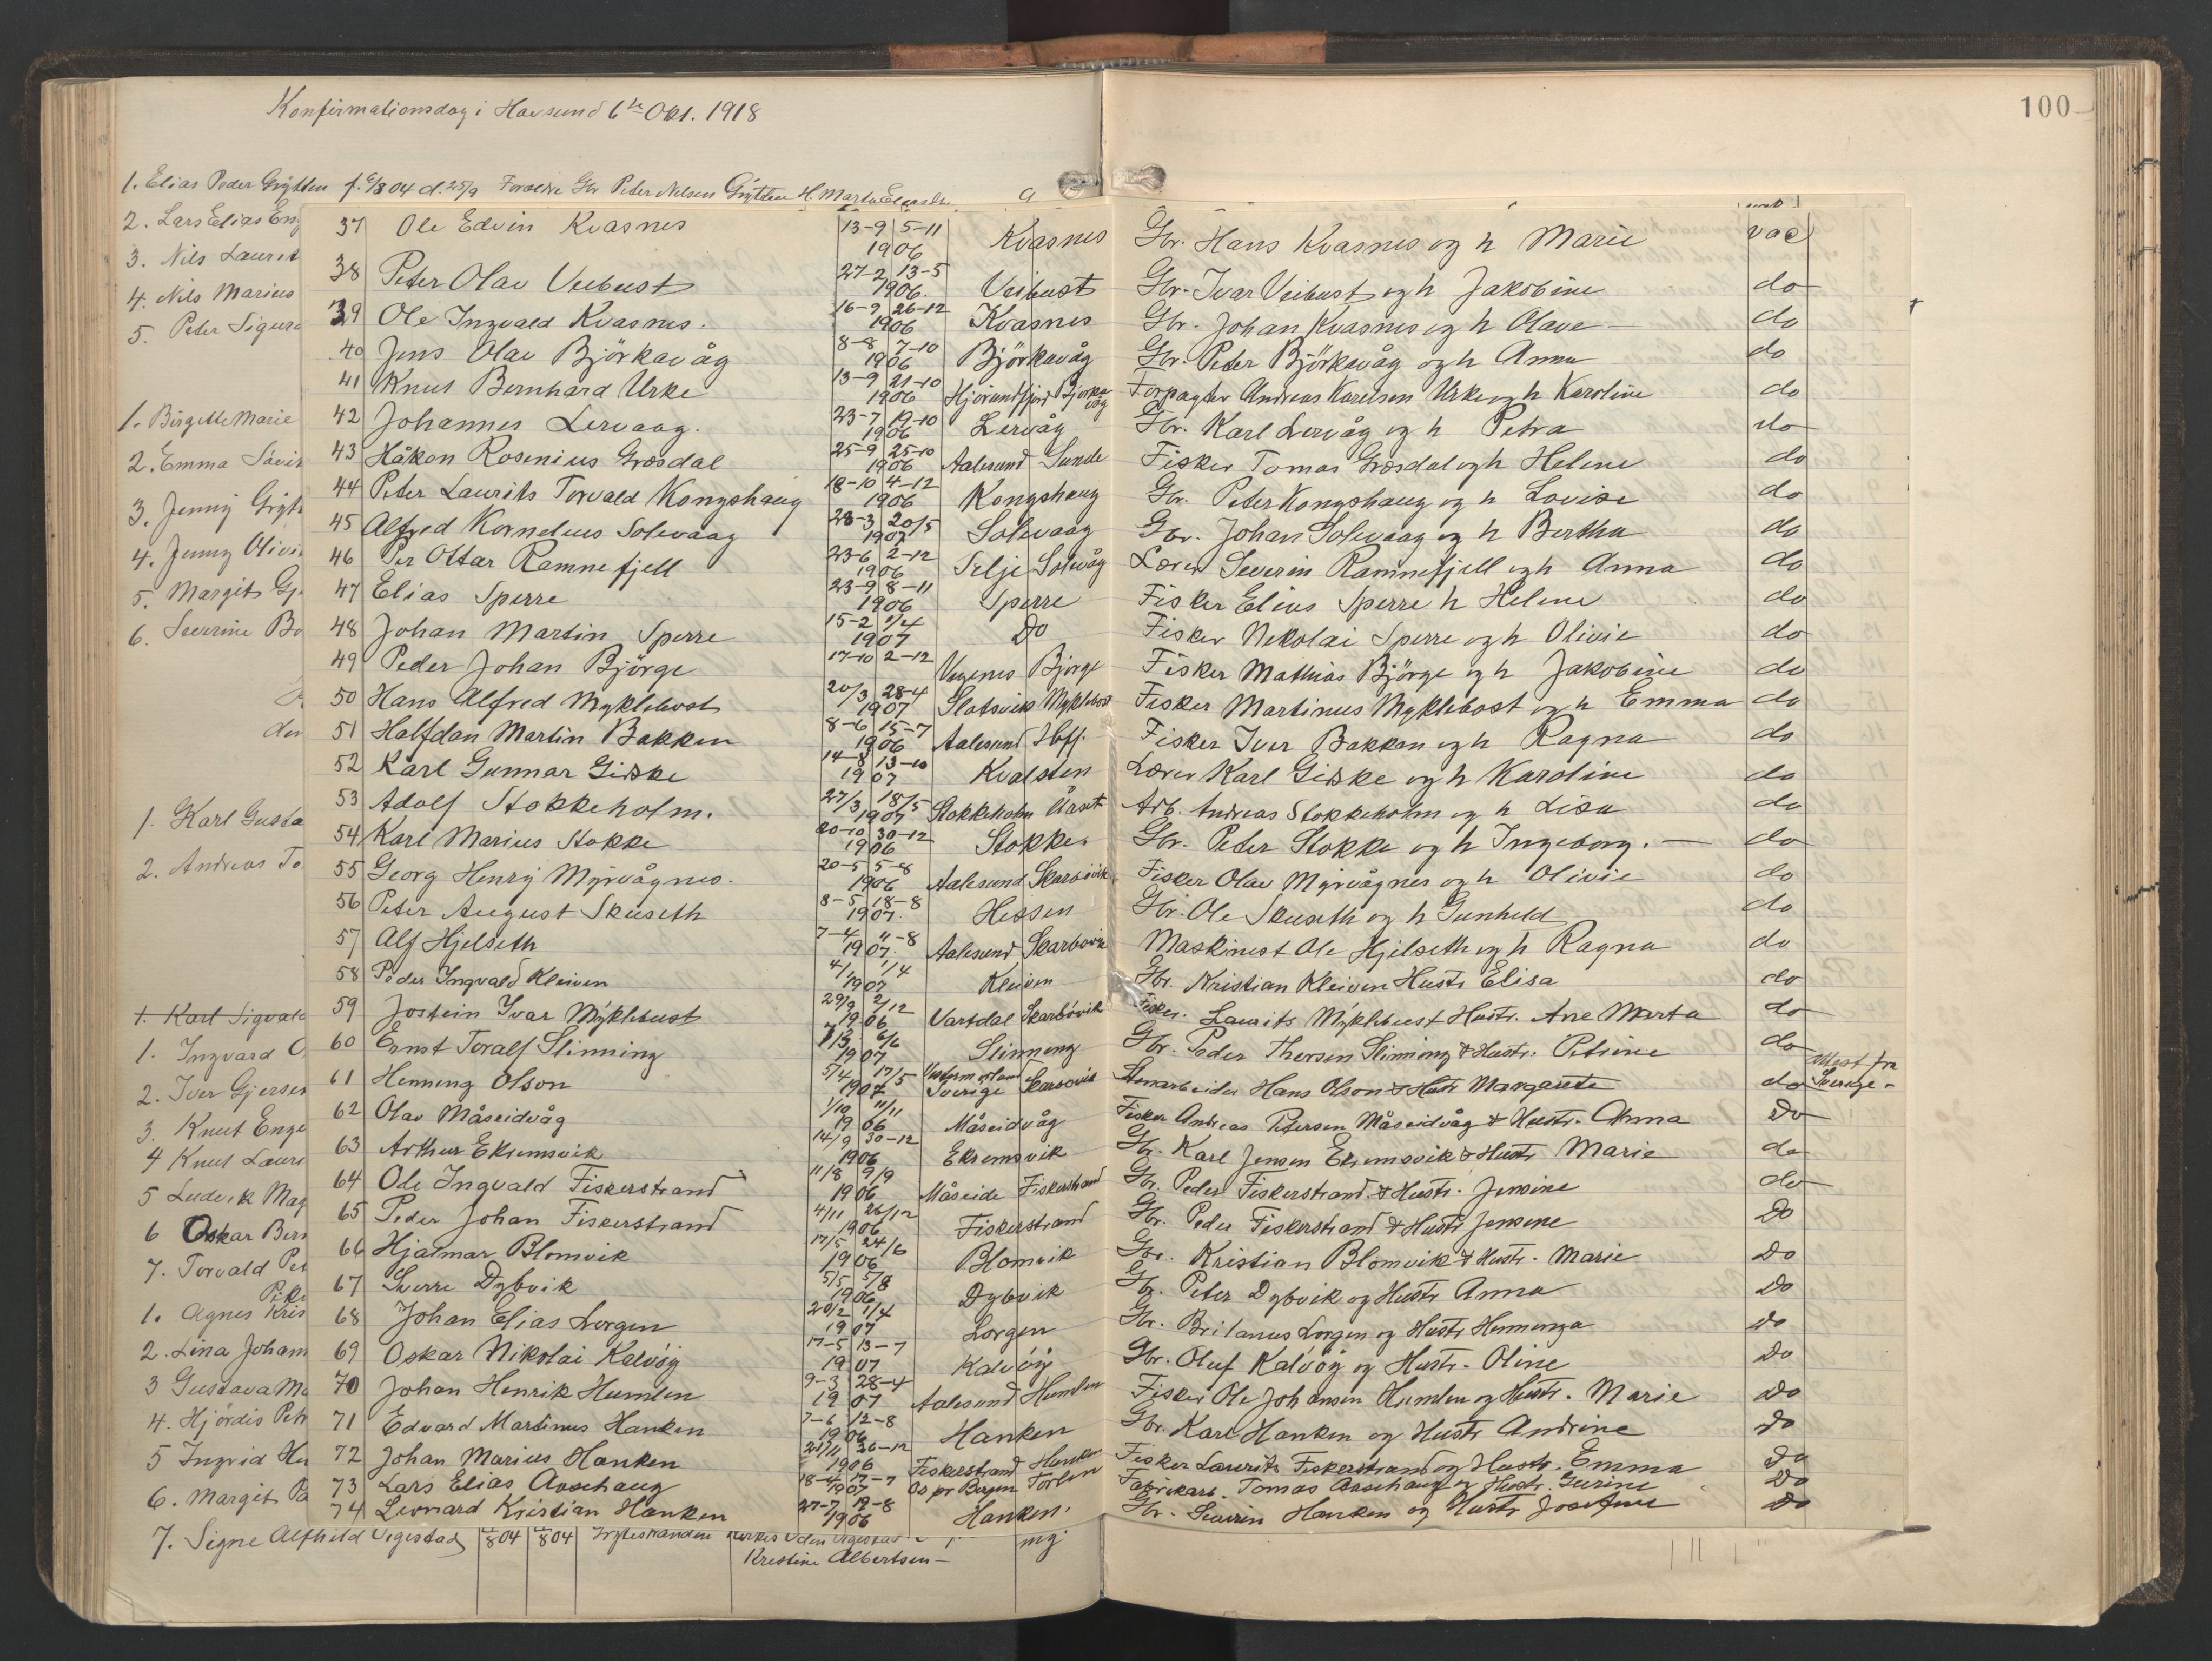 100
Konfirmationsdag i Havsund 6te Okt. 1918
1. Elias Peder Grytten f. 6/8 04 d. 25/9 Forældre Gbr Peter Nilsen Grytten H. Marta
2. Lars Elias Eng
3. Nils Laurit
4. Nils Marius
5. Peter Sigurd
1. Birgitte Marie
2. Emma Sävir
3. Jenny Gryt
4. Jenny Olivi
5. Margit Gj
6. Severine Bo
den
1. Karl Gusta
2. Andreas To
1. Karl Sigvald
1. Ingvard O
2. Iver Gjersen
3. Knut Enge
4 Knut Lauri
5 Ludvik Mag
6 Oskar Bern
7. Torvald Pet
Pike
1. Agnes Kris
2. Lina Johann
3 Gustava Ma
4. Hjördis Petr
5 Ingrid He
6. Margit Pa
37 Ole Edvin Kvasnes 13-9 5-11 1906 Kvasnes Gbr. Hans Kvasnes og h Marie vac
38 Peter Olav Veibust 27-2 13-5 1906. Veibust Gbr. Ivar Veibust og h Jakobine do
39 Ole Ingvald Kvasnes. 16-9 26-12 1906 Kvasnes Gbr. Johan Kvasnes og h Olave — do
40 Jens Olav Björkavåg 8-8 7-10 1906 Björkavåg Gbr. Peter Björkavåg og h Anna do
41 Knut Bernhard Urke 13-9 21-10 1906 Hjörundfjord Bjorkavåg Forpagter Andreas Karelsen Urke og h Karoline do
42 Johannes Lervaag. 23-7 19-10 1906 Lervåg Gbr. Karl Lervåg og h Petra do
43 Håkon Rosenius Grøsdal 25-9 25-10 1906 Aalesund Sunde Fisker Tomas Grøsdal og h Helene do
44 Peter Laurits Torvald Kongshaug 18-10 4-12 1906 Kongshaug Gbr. Peter Kongshaug og h Lovise do
45 Alfred Kornelius Solevaag 28-3 20/5 1907 Solevaag Gbr. Johan Solevaag og h Bertha do
46 Per Ottar Ramnefjell 23-6 2-12 1906 Selje Solevåg Lærer Severin Ramnefjell og h Anna do
47 Elias Sperre 23-9 8-11 1906 Sperre Fisker Elias Sperre h Helene do
48 Johan Martin Sperre 15-2 1/4 1907 Do Fisker Nekolai Sperre og h Olivie do
49 Peder Johan Björge 17-10 2-12 Vegenes Bjorge Fisker Mathias Björge og h Jakobine do
50 Hans Alfred Myklebost 20/3 28-4 1907 Slotsvik Myklebost Fisker Martinus Myklebost og h Emma do
51 Halfdan Martin Bakken 8-6 15-7 1906 Aalesund Hoff. Fisker Iver Bakken og h Ragna do
52 Karl Gunnar Giske 14-8 13-10 1907 Kvalsten Lærer Karl Giske og h Karoline do
53 Adolf Stokkeholm. 27/3 18/5 1907 Stokkeholm Aarset Arb. Andreas Stokkeholm og h Lisa do
54 Karl Marius Stokke 20-10 30-12 1906 Stokke. Gbr. Peter Stokke og h Ingeborg. — do
55 Georg Henry Myrvågnes. 20-5 5-8 1906 Aalesund Skarbövik Fisker Olav Myrvågnes og h Olivie do
56 Peter August Skuseth 8-5 18-8 1907. Hessen Gbr. Ole Skuseth og h Gunheld do
57 Alf Hjelseth 7-4 11-8 1907. Aalesund Skarbovik Maskinist Ole Hjelseth og h Ragna do
58 Peder Ingvald Kleiven 4/1 1/4 1907 Kleiven Gbr. Kristian Kleiven Hustr Elisa do
59 Jostein Ivar Myklebust 29/9 2/12 1906 Vartdal Skarbövik Fisker. Laurits Myklebust Hustr. Ane Marta do
60 Ernst Toralf Slinning 6/6 1907 Slinneng Gbr. Peder Thorsen Slinning & Hustr. Petrine do
61 Henneng Olson 5/4 17/5 1907 Vestermorland Sverige Skarbövik Stenarbeider Hans Olson & Hustr Margarete do Attest fra Sverige -
62 Olav Måseidvåg 1/10 11/11 1906 Måseidvåg Fisker Andreas Petersen Måseidvåg & Hustr. Anna Do
63 Arthur Ekremsvik 14/9 30-12 1906 Ekremsvik Gbr. Karl Jensen Ekremsvik & Hustr Marie do
64 Ole Ingvald Fiskerstrand 11/8 9/9 1906 Måseide Fiskerstrand Gbr. Peder Fiskerstrand & Hustr. Jensine do
65 Peder Johan Fiskerstrand 4/11 26/12 1906 Fiskerstrand Gbr. Peder Fiskerstrand & Hustr Jensene Do
66 Hjalmar Blomvik 17/5 24/6 1906 Blomvik Gbr. Kristian Blomvik & Hustr. Marie Do
67 Sverre Dybvik 5/5 5/8 1906 Dybvik Gbr. Peter Dybvik og Hustr Anna Do
68 Johan Elias Lorgen 20/2 1/4 1907 Lorgen Gbr. Britanus Lorgen og Hustr Do
69 Oskar Nikolai Kalvöy 17-5 13-7 1907 Kalvöy Gbr. Oluf Kalvöy og Hustr. Oline Do
70 Johan Henrik Humlen 9-3 28-4 1907 Aalesund Humlen Fisker Ole Johansen Humlen og Hustr. Marie Do
71 Edvard Martinus Hanken 7-6 12-8 1906 Hanken Gbr. Karl Hanken og Hustr Andrine Do
72 Johan Marius Hanken 21/11 26-12 1906 Fiskerstrand Hanken Fisker Laurits Fiskerstrand og Hustr. Emma Do
73 Lars Elias Aaschaug 18-4 17-7 1907 Os pr Bergen Torlen Fabrikarb. Tomas Aaschaug og Hustr. Gurine Do
74 Leonard Kristian Hanken 27-7 12-8 1906 Hanken. Gbr. Severin Hanken og Hustr Josefine Do
7. Signe Alfhild Vegestad 8 04 8 04 Gryttestranden
Kristine Albertsen — mg